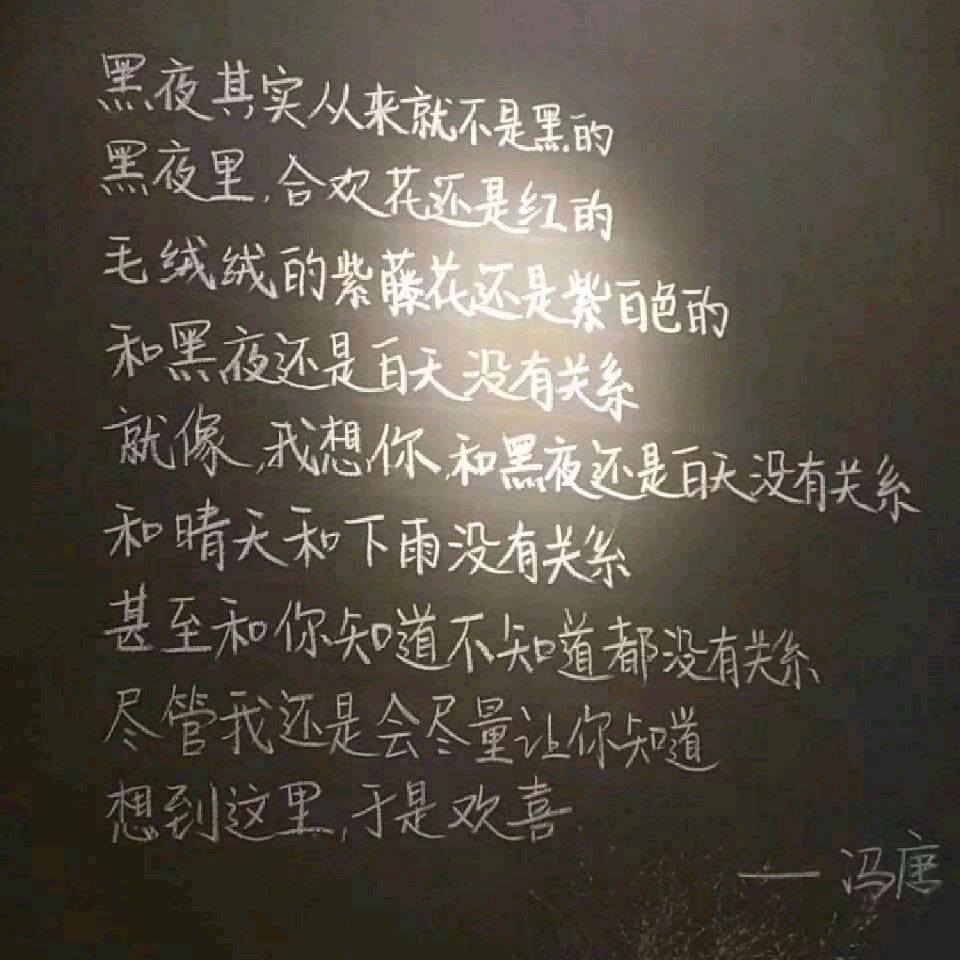 黑夜其实从来就不是黑的
黑夜里,合欢花还是红的
毛绒绒的紫藤花还是紫白色的
和黑夜还是白天没有关系
就像,我想你,和黑夜还是白天没有关系
和晴天和下雨没有关系
甚至和你知道不知道都没有关系
尽管我还是会尽量让你知道
想到这里,于是欢喜
——冯唐